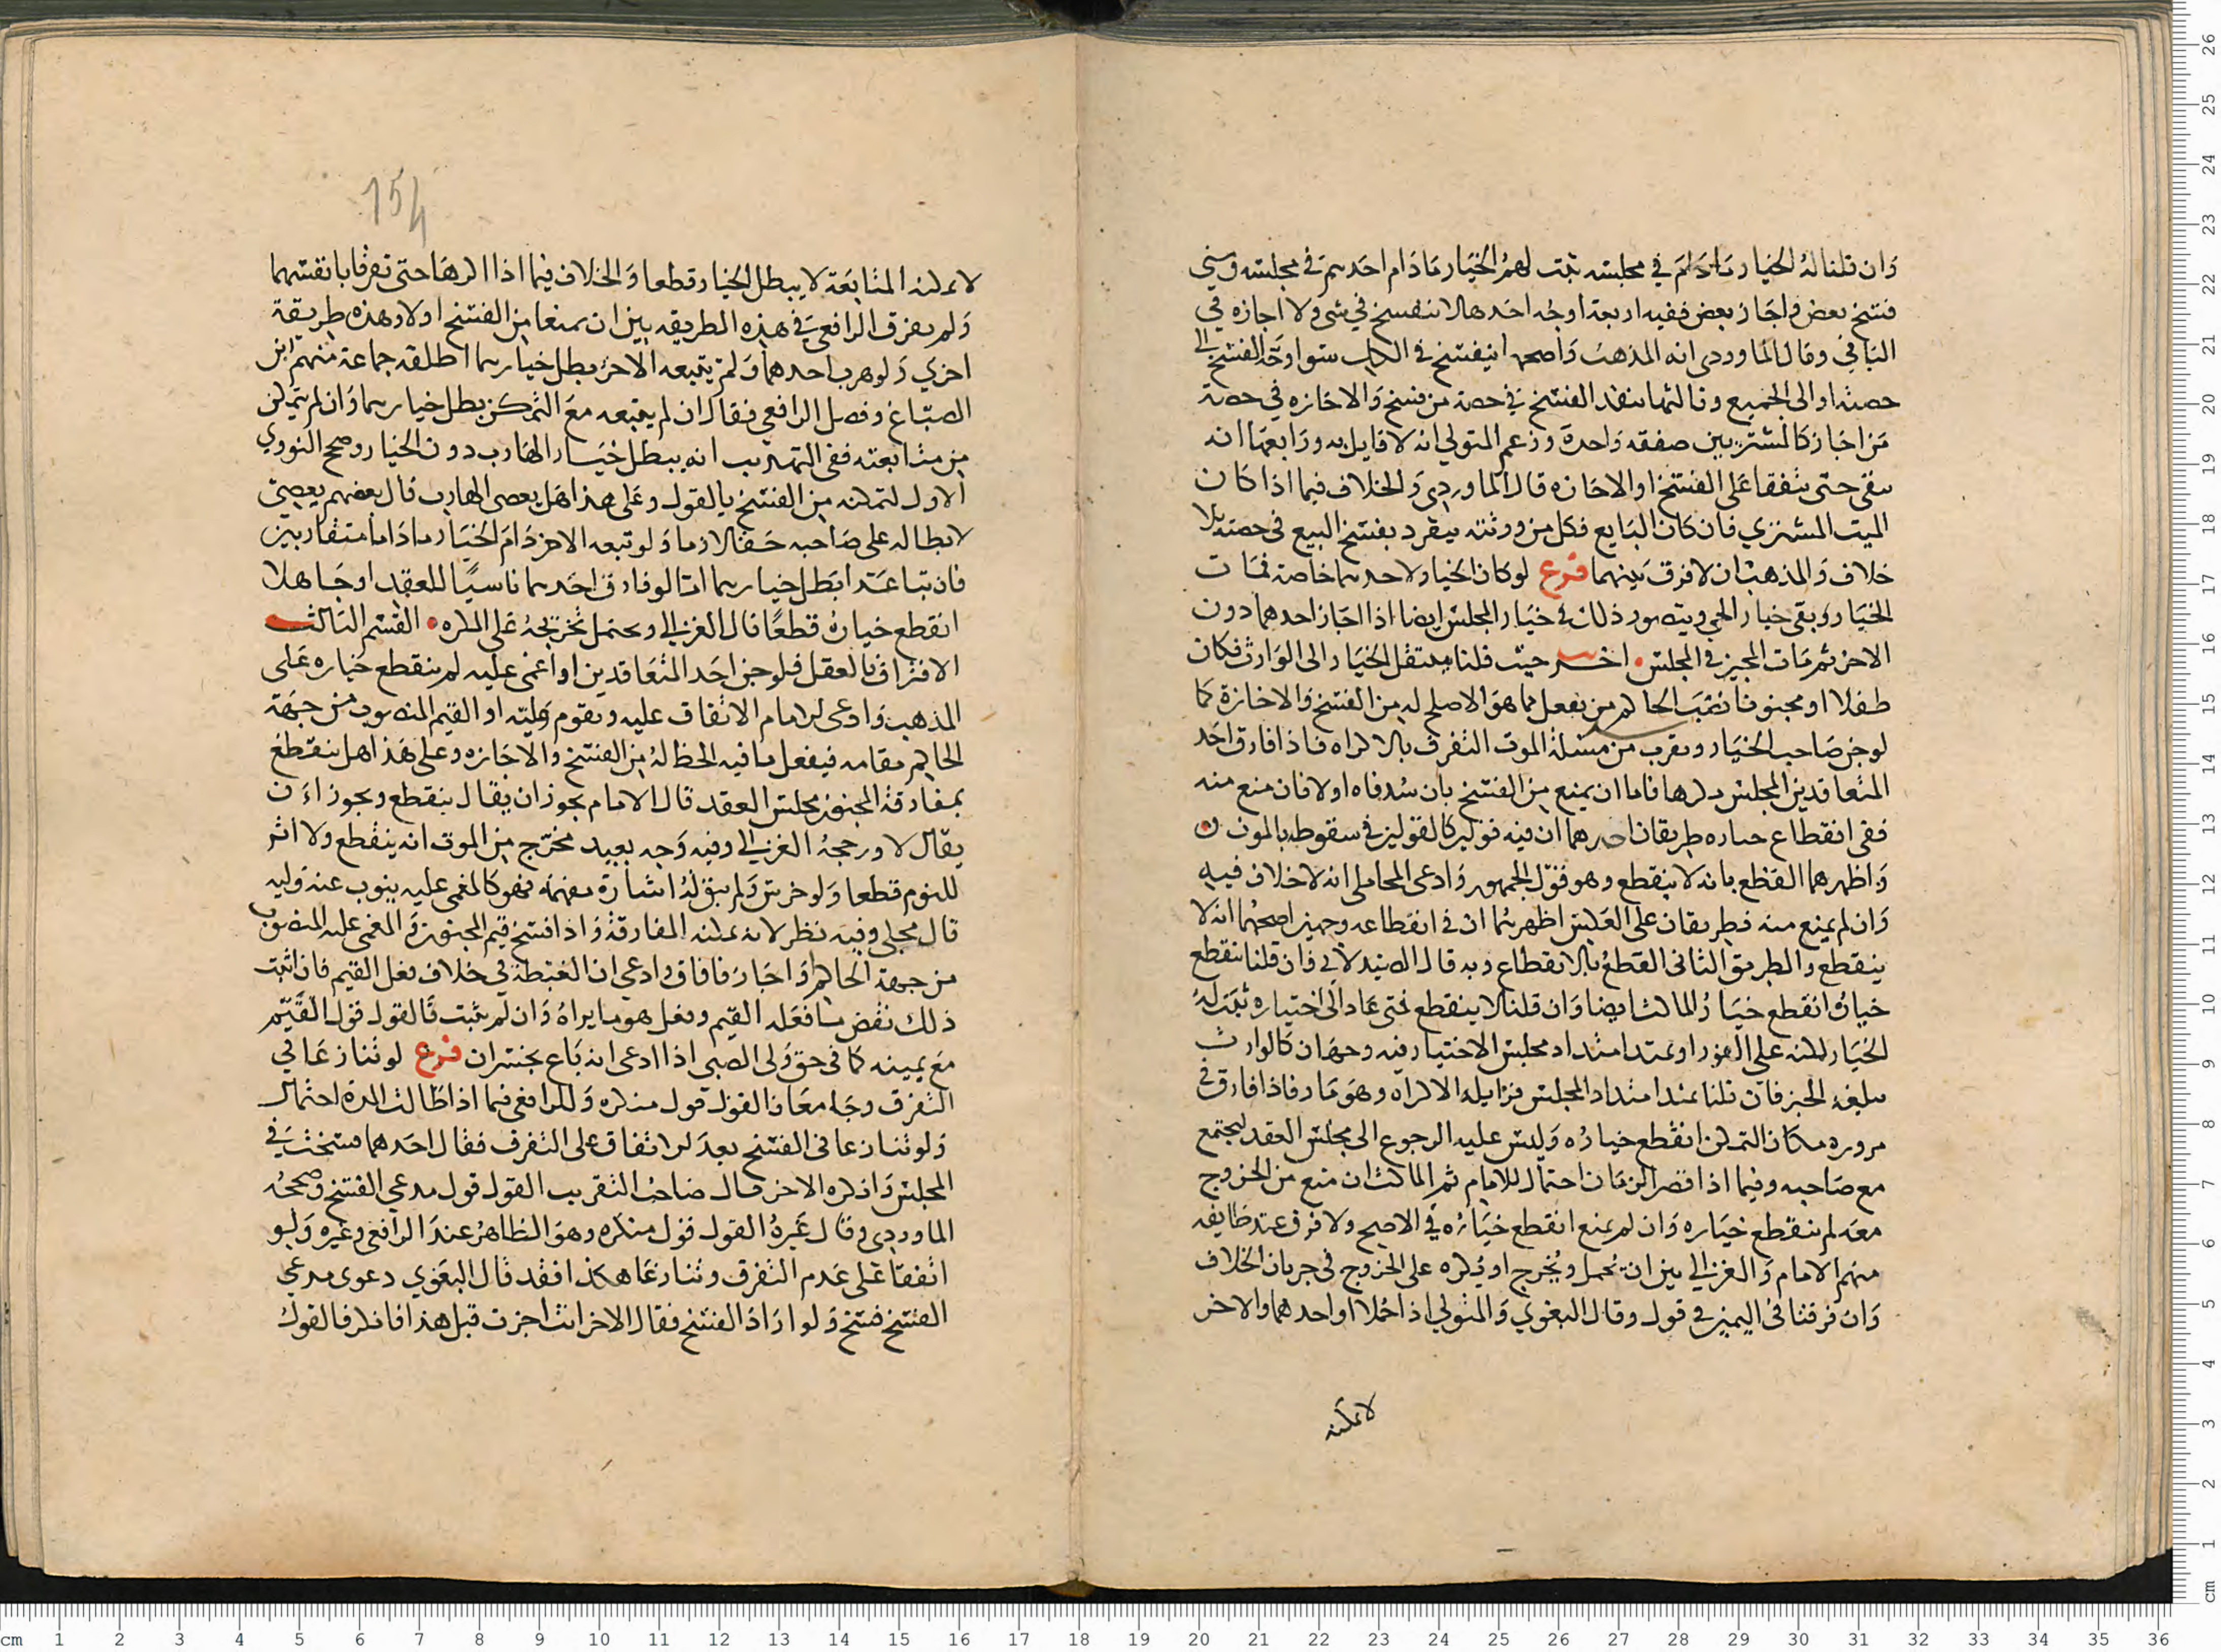 وان قلنا له الخيار ما دام في مجلسه ثبت لهم الخيار ما دام احدهم في مجلسه ومتى
فسخ بعض واجاز بعض ففيه اربعة اوجه احدها لا ينفسخ في شي ولا اجازه في
الباقي وقال الماوردي انه المذهب واصحها ينفسخ في الكل سوا وجه الفسخ الى
حصته او الى الجميع وثالثها ينفذ الفسخ في حصة من فسخ والاجازه في حصة
من اجاز كالمشتريين صفقه واحدة وزعم المتولي انه لا قايل به ورابعها انه
يبقى حتى يتفقا على الفسخ او الاجازه قال الماوردي والخلاف فيما اذا كان
الميت المشتري فان كان البايع فكل من ورثته ينفرد بفسخ البيع في حصته بلا
خلاف والمذهب ان لا فرق بينهما فرع لو كان الخيار لاحدهما خاصة فمات
الخيار وبقي خيار الحي ويتصور ذلك في خيار المجلس ايضا اذا اجاز احدهما دون
الاخر ثم مات المجيز في المجلس اخر حيث قلنا ينتقل الخيار الى الوارث فكان
طفلا او مجنونا نصب الحاكم من يفعل ما هو الاصلح له من الفسخ والاجازة كما
لو جن صاحب الخيار ويقرب من مسئلة الموت التفرق بالاكراه فاذا فارق احد
المتعاقدين المجلس مكرها فاما ان يمنع من الفسخ بان سد فاه او لا فان منع منه
ففي انقطاع خياره طريقان احدهما ان فيه قولين كالقولين في سقوطه بالموت
واظهرهما القطع بانه لا ينقطع وهو قول الجمهور وادعى المحاملي انه لا خلاف فيه
وان لم يمنع منه فطريقان على العكس اظهرهما ان في انقطاعه وجهين اصحهما انه لا
ينقطع والطريق الثاني القطع بالانقطاع وبه قال الصيدلاني فان قلنا ينقطع
خياره انقطع خيار الماكث ايضا وان قلنا لا ينقطع فمتى عاد الى اختياره ثبت له
الخيار لكنه على الفور او يمتد امتداد مجلس الاختيار فيه وجهان كالوارث
يبلغه الخبر فان قلنا يمتد امتداد المجلس فزايله الاكراه وهو مار فاذا فارق في
مروره مكان التمكن انقطع خياره وليس عليه الرجوع الى مجلس العقد ليجتمع
مع صاحبه وفيما اذا قصر الزمان احتمال للامام ثم الماكث ان منع من الخروج
معه لم ينقطع خياره وان لم يمنع انقطع خياره في الاصح ولا فرق عند طايفه
منهم الامام والغزالي بين ان يحمل ويخرج او يكره على الخروج في جريان الخلاف
وان فرقنا في اليمين في قول وقال البغوي والمتولي اذا حملا او احدهما والاخر
لا يمكنه
154
لا يمكنه المتابعة لا يبطل الخيار قطعا والخلاف فيما اذا اكرها حتى تفرقا بانفسهما
ولم يفرق الرافعي في هذه الطريقه بين ان يمنعا من الفسخ او لا وهذه طريقة
اخري ولو هرب احدهما ولم يتبعه الاخر بطل خيارهما اطلقه جماعة منهم ابن
الصباغ وفصل الرافعي فقال ان لم يتبعه مع التمكن بطل خيارهما وان لم يتمكن
من متابعته ففي التهذيب انه يبطل خيار الهارب دون الخيار وصحح النووي
الاول لتمكنه من الفسخ بالقول وعلى هذا هل يعصي الهارب قال بعضهم يعصي
لابطاله على صاحبه حقا لازما ولو تبعه الاخر دام الخيار ما داما متقاربين
فان تباعدا بطل خيارهما اما لو فارق احدهما ناسيا للعقد او جاهلا
انقطع خياره قطعا قال الغزالي ويحتمل تخريجه على المكره القسم الثالث
الافتراق بالعقل فلو جن احد المتعاقدين او اغمي عليه لم ينقطع خياره على
المذهب وادعى الامام الاتفاق عليه ويقوم وليه او القيم المنصوب من جهة
الحاكم مقامه فيفعل ما فيه الحظ له من الفسخ والاجازه وعلى هذا هل ينقطع
بمفارقة المجنون مجلس العقد قال الامام يجوز ان يقال ينقطع ويجوز ان
يقال لا ورجحه الغزالي وفيه وجه بعيد مخرج من الموت انه ينقطع ولا اثر
للنوم قطعا ولو خرس ولم يبق له اشارة مفهمه فهو كالمغمى عليه ينوب عنه وليه
قال مجلي وفيه نظر لانه يمكنه المفارقة واذا فسخ قيم المجنون والمغمى عليه المنصوب
من جهة الحاكم او اجاز فافاق وادعى ان الغبطة في خلاف فعل القيم فان اثبت
ذلك نقض ما فعله القيم وفعل هو ما يراه وان لم يثبت فالقول قول القيم
مع يمينه كما في حق ولي الصبي اذا ادعى انه باع بخسران فرع لو تنازعا في
التفرق وجا معا فالقول قول منكره وللرافعي فيما اذا طالت المدة احتمال
ولو تنازعا في الفسخ بعد الاتفاق على التفرق فقال احدهما فسخت في
المجلس وانكره الاخر قال صاحب التقريب القول قول مدعي الفسخ وصححه
الماوردي وقال غيره القول قول منكره وهو الظاهر عند الرافعي وغيره ولو
اتفقا على عدم التفرق وتنازعا هكذا فقد قال البغوي دعوى مدعي
الفسخ فسخ ولو اراد الفسخ فقال الاخر انت اجزت قبل هذا فانكر فالقول